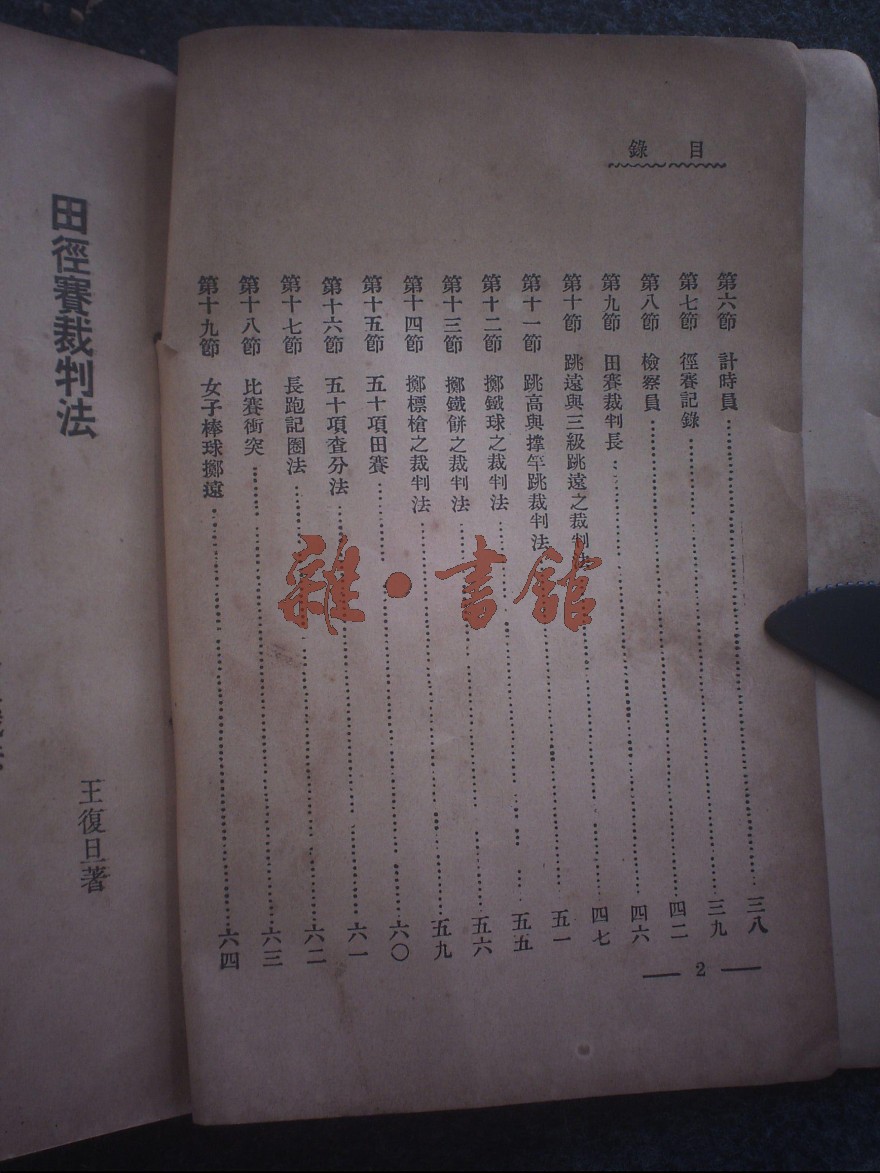 目錄
第六節 計時員……三八
第七節 徑賽記錄……三九
第八節 檢察員……四二
第九節 田賽裁判長……四六
第十節 跳遠與三級跳遠之裁判法……四七
第十一節 跳高與撑竿跳裁判法……五一
第十二節 擲鐵球之裁判法……五五
第十三節 擲鐵餅之裁判法……五六
第十四節 擲標槍之裁判法……五九
第十五節 五十項田賽……六〇
第十六節 五十項查分法……六一
第十七節 長跑記圈法……六二
第十八節 比賽衝突……六三
第十九節 女子棒球擲遠……六四
— 2 —
田徑賽裁判法
王復旦著
雜·書館